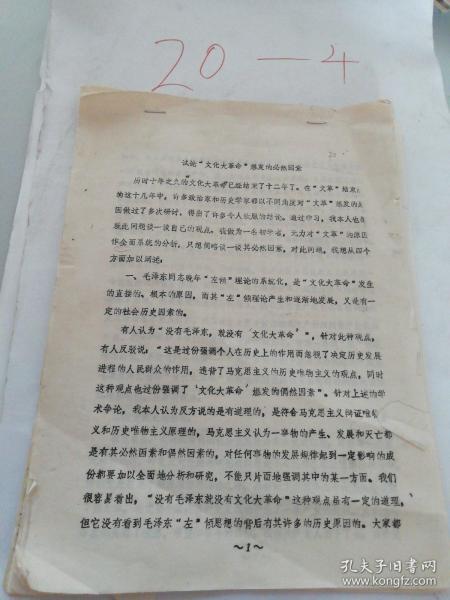 20-4
试论“文化大革命”爆发的必然因素
历时十年之久的文化大革命已经结束了十二年了。在“文革”结束后
的这十几年中，许多政治家和历史学家都以不同角度对“文革”爆发的原
因做过了多次研讨，得出了许多令人欣服的结论。通过学习，我本人也就
此问题谈一谈自己的观点。我做为一名初学者，无力对“文革”的原因
作全面系统的分析，只想简略谈一谈其必然因素，对此问题，我想从四个
方面加以阐述：
一、毛泽东同志晚年“左倾”理论的系统化，是“文化大革命”发生
的直接的、根本的原因，而其“左”倾理论产生和逐渐地发展，又是有一
定的社会历史因素的。
有人认为“没有毛泽东，就没有‘文化大革命’”，针对此种观点，
有人反驳说：“这是过份强调个人在历史上的作用而忽视了决定历史发展
进程的人民群众的作用，违背了马克思主义的历史唯物主义的观点，同时
这种观点也过份强调了‘文化大革命’爆发的偶然因素”。针对上述的学
术争论，我本人认为反方说的是有道理的，是符合马克思主义辩证唯物主
义和历史唯物主义原理的，马克思主义认为一事物的产生、发展和灭亡都
是有其必然因素和偶然因素的，对任何事物的发展规律起到一定影响的成
份都要加以全面地分析和研究，不能只片面地强调其中的某一方面。我们
很容易看出，“没有毛泽东就没有文化大革命”这种观点虽有一定的道理，
但它没有看到毛泽东“左”倾思想的背后有其许多的历史原因的。大家都
～1～
孔夫子旧书网
www.kongfz.com